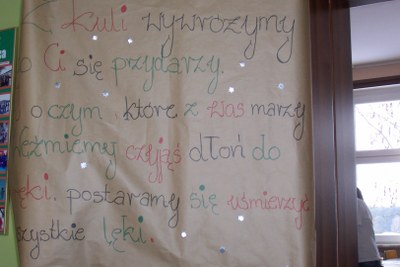 Z kuli wywróżymy
co Ci się przydarzy.
o czym, które z was marzy
Weźmiemy czyjąś dłoń do
ręki. postaramy się uśmierzyć
wszystkie lęki.